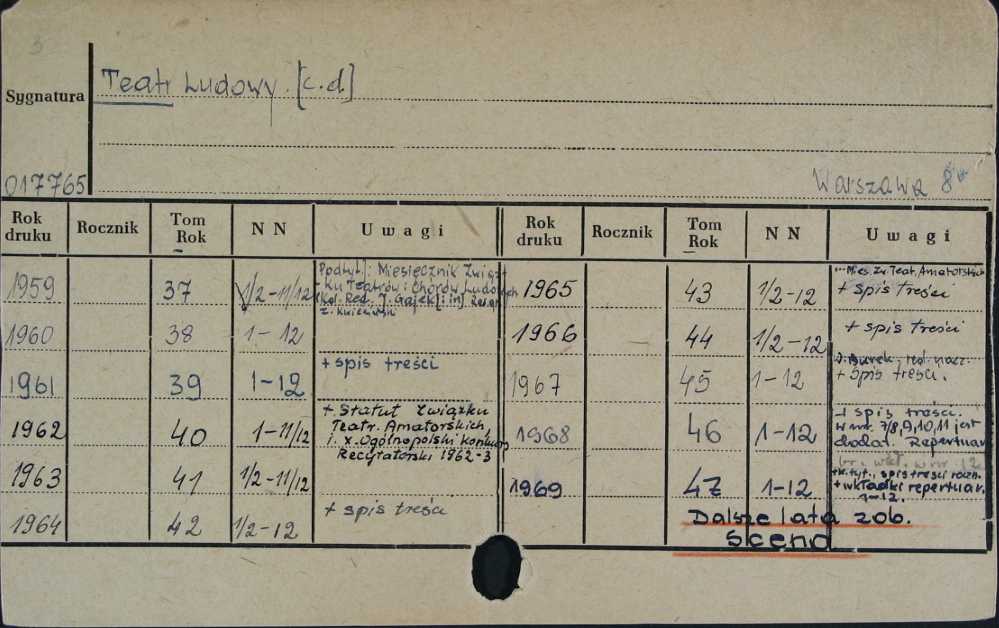 Teatr Ludowy [c.d]
Sygnatura
017765
Warszawa 8°
Rok druku Rocznik Tom Rok N N Uwagi Rok druku Rocznik Tom Rok N N Uwagi
1959 37 1/2-11/12 Podtyt.: Miesięcznik Związ-
ku Teatrów i Chórów Ludowych
(Kol. Red. J. Gajek [i in]
1960 38 1-12
1961 39 1-12 + spis treści
1962 40 1-11/12 + Statut Związku
Teatr. Amatorskich
i X. Ogólnopolski Konkurs
Recytatorski 1962-3
1963 41 1/2-11/12
1964 42 1/2-12 + spis treści
1965 43 1/2-12 Mies. Zw. Teat. Amatorskich
+ spis treści
1966 44 1/2-12 + spis treści
1967 45 1-12 J. Burek, red. nacz.
+ spis treści.
1968 46 1-12 + spis treści.
w nr. 7/8,9,10,11 jest
dodat. Repertuar
wkł. w nr 12
1969 47 1-12 + k. tyt., spis treści roczn.
+ wkładki repertuar.
1-12.
Dalsze lata zob.
Scena